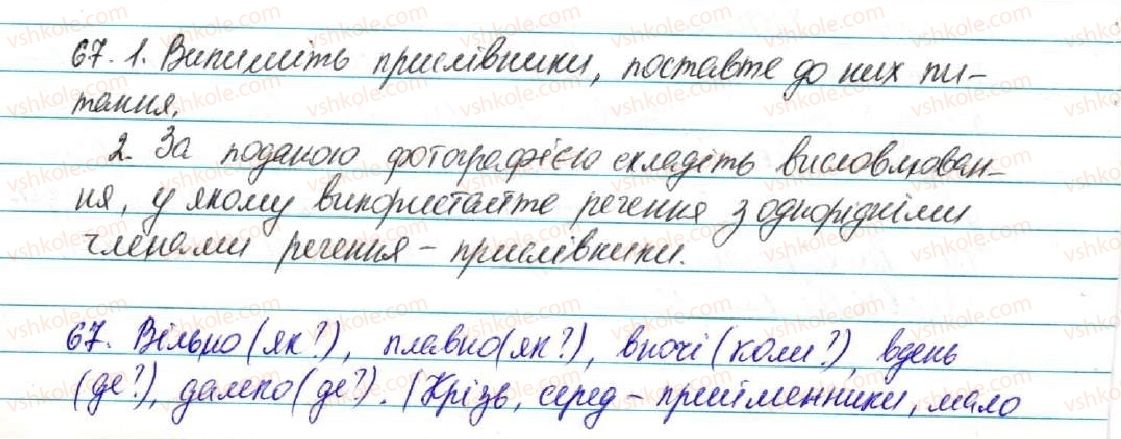 67. 1. Випишіть прислівники, поставте до них пи-
тання.
2. За поданою фотографією складіть висловлюван-
ня, у якому використайте речення з однорідніми
членами речення – прислівники.
67. Вільно (як?), плавно (як?), вночі (коли?), вдень
(де?), далеко (де?). (Крізь, серед – прийменники, мало